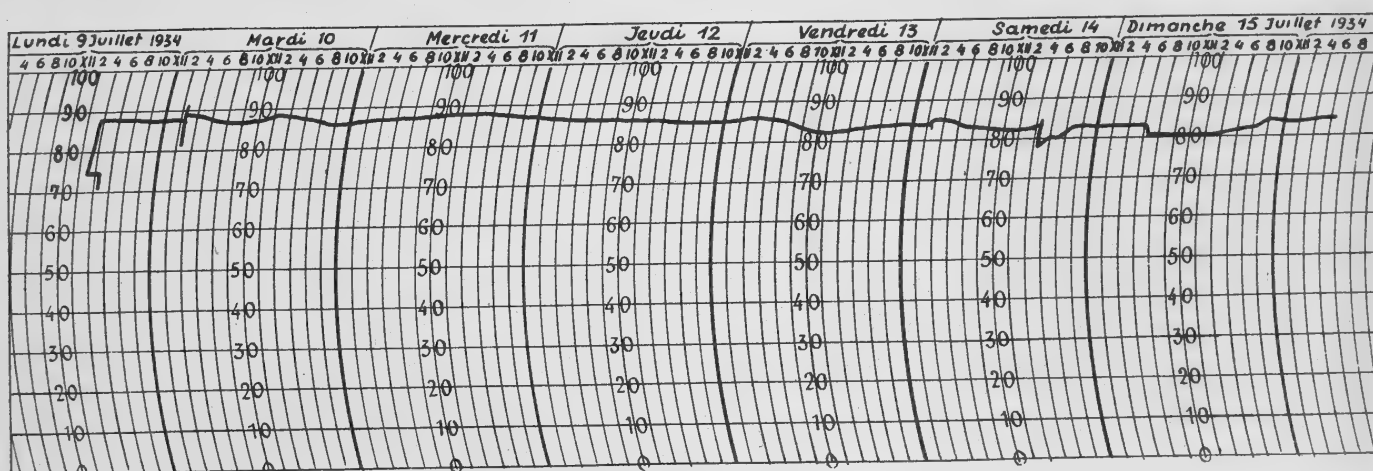 Lundi 9 Juillet 1934 Mardi 10 Mercredi 11 Jeudi 12 Vendredi 13 Samedi 14 Dimanche 15 Juillet 1934
4 6 8 10 XII 2 4 6 8 10 XII 2 4 6 8 10 XII 2 4 6 8 10 XII 2 4 6 8 10 XII 2 4 6 8 10 XII 2 4 6 8 10 XII 2 4 6 8 10 XII 2 4 6 8 10 XII 2 4 6 8 10 XII 2 4 6 8 10 XII 2 4 6 8 10 XII 2 4 6 8 10 XII 2 4 6 8 10 XII 2 4 6 8
100 100 100 100 100 100 100
90 90 90 90 90 90 90
80 80 80 80 80 80 80
70 70 70 70 70 70 70
60 60 60 60 60 60 60
50 50 50 50 50 50 50
40 40 40 40 40 40 40
30 30 30 30 30 30 30
20 20 20 20 20 20 20
10 10 10 10 10 10 10
0 0 0 0 0 0 0